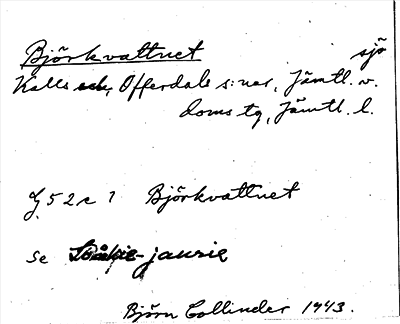 Björkvattnet sjö
Kalls och, Offerdals s:nar, Jämtl. v.
doms tg, Jämtl. l.
Björkvattnet
se -jaurie
Björn Collinder 1943.